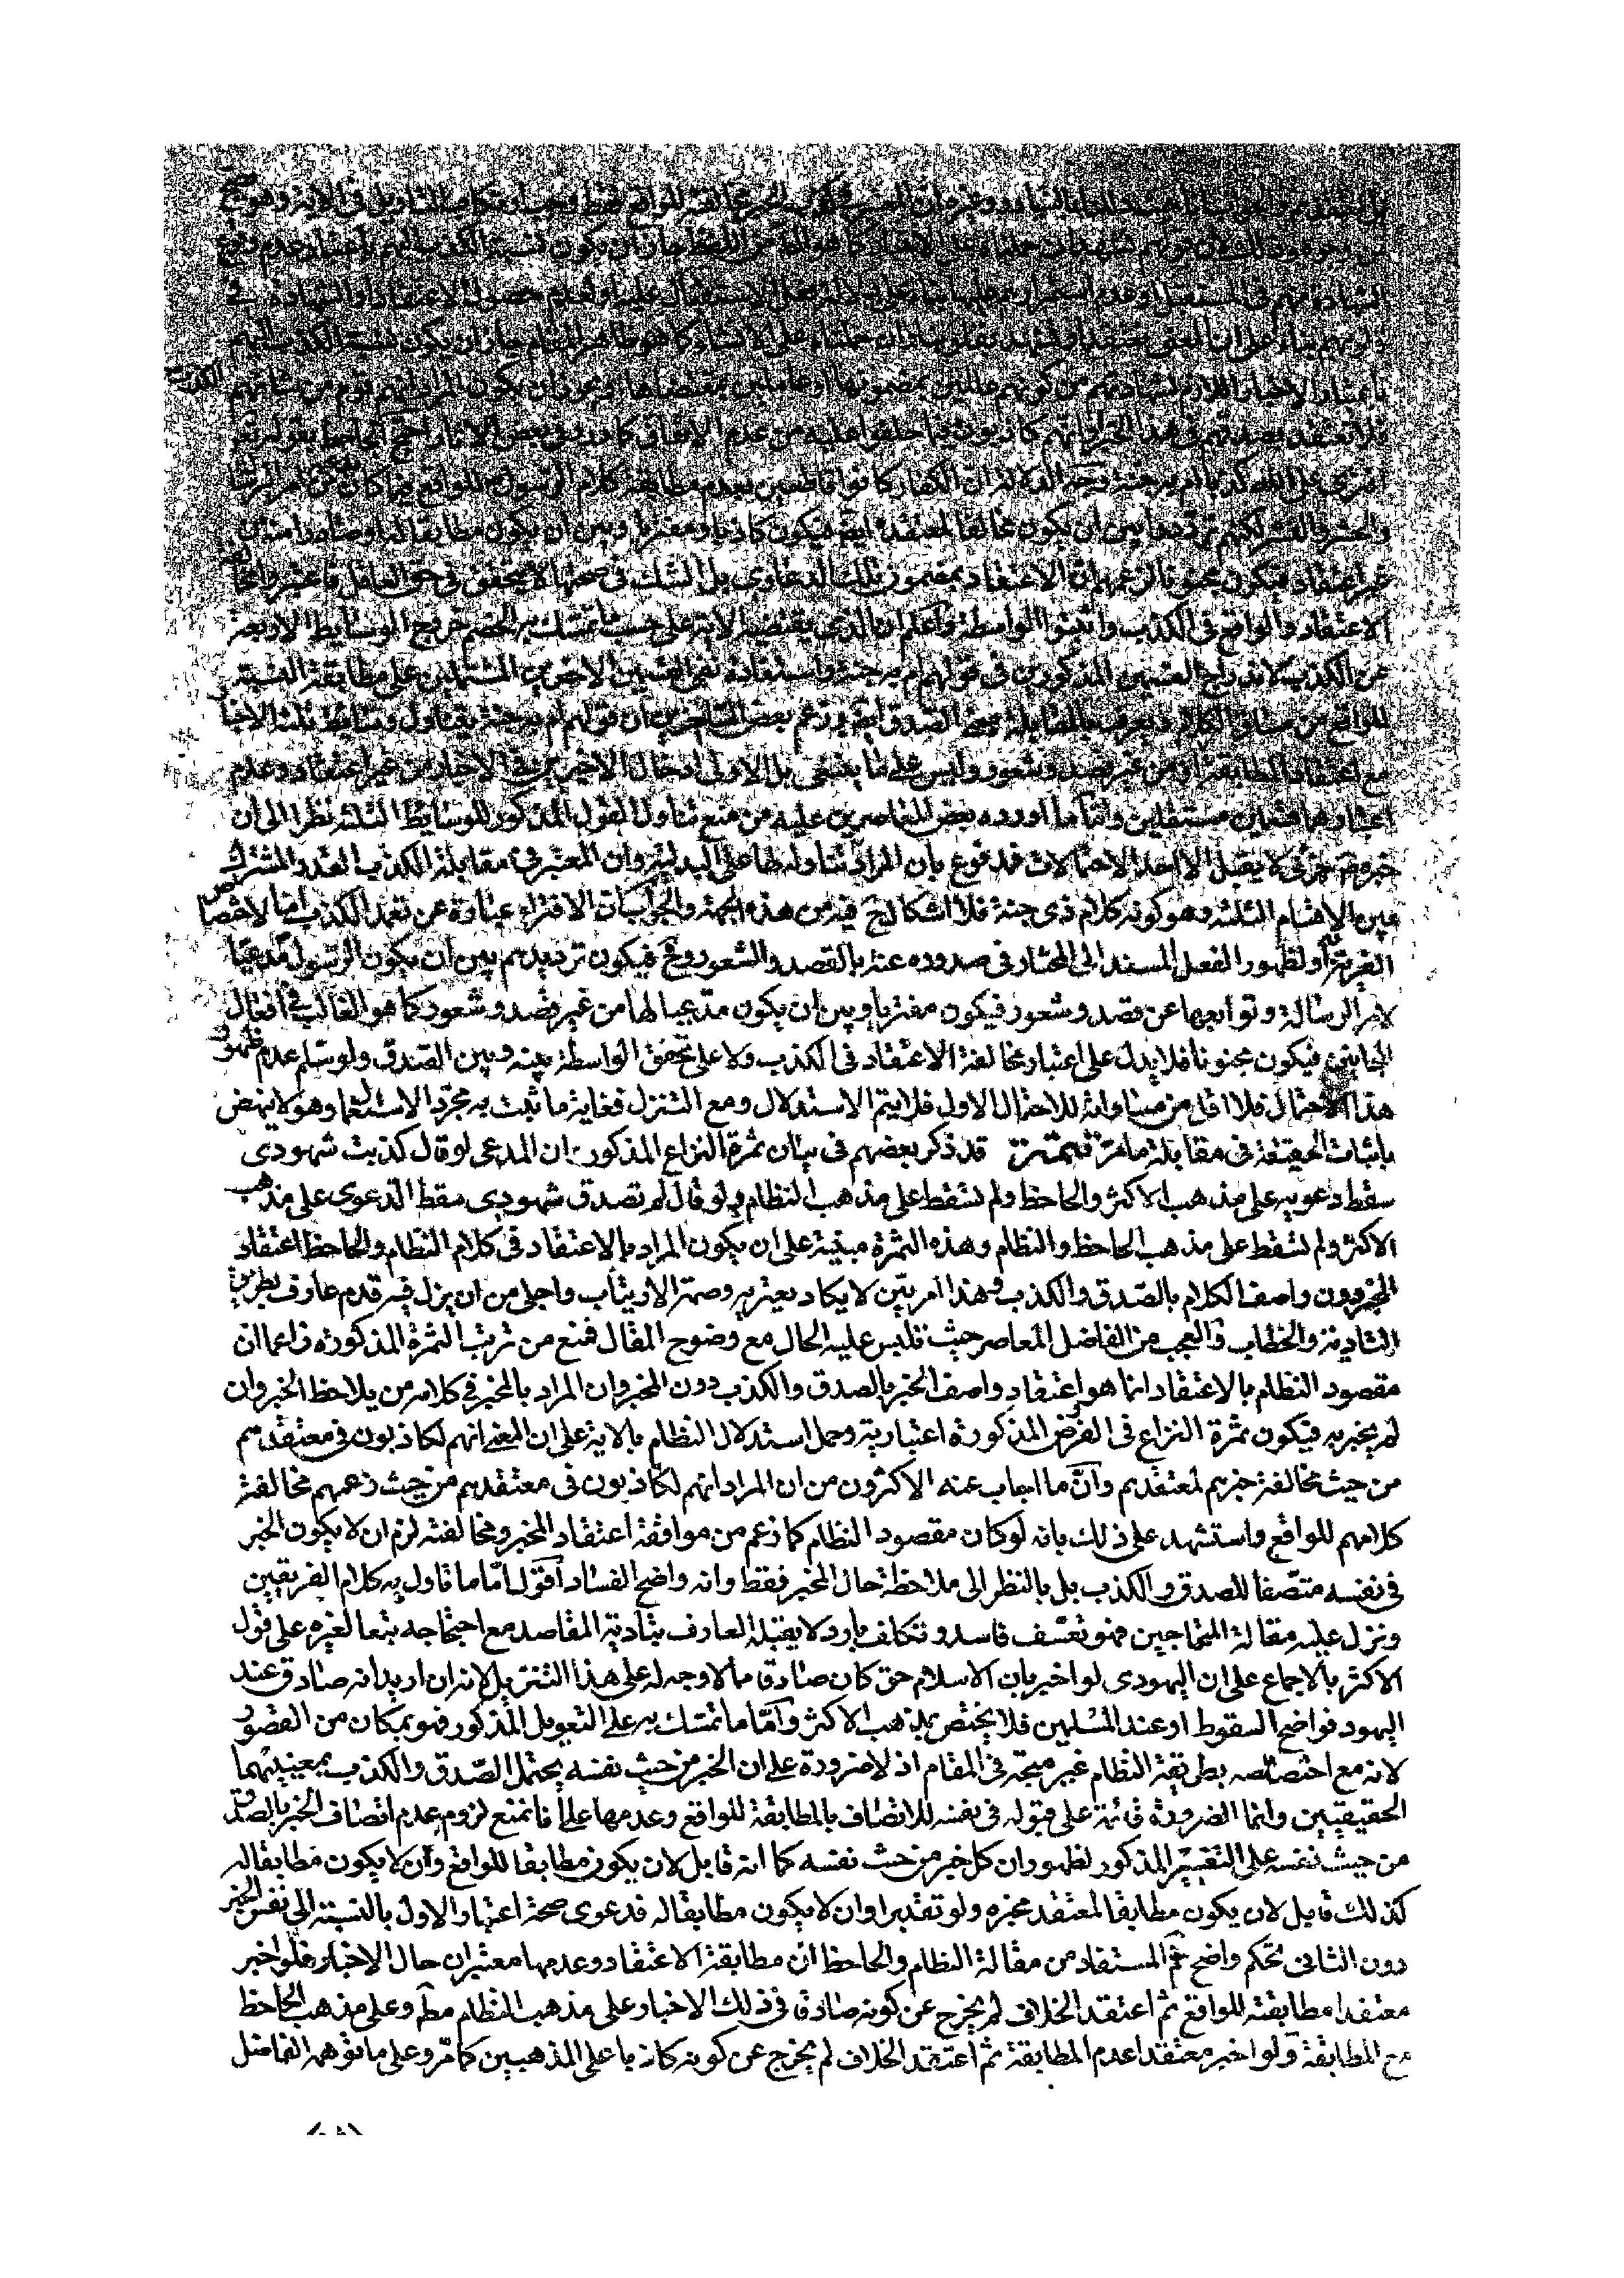 فلا نعتقد بصدقهم في هذا الخبر او انهم كاذبون فيما حلفوا عليه من عدم الانفاق كما ورد في بعض الاثار احتج الجاحظ بقوله تع
افترى على الله كذبا ام به جنة وجه الدلالة ان الكفار كانوا قاطعين بعدم مطابقة كلام الرسول للواقع فيما كان
والحشر والنشر لكنهم ترددوا بين ان يكون مخالفا لمعتقده ايضا فيكون كاذبا ومفتريا وبين ان يكون مطابقا له او صادرا من
غير اعتقاد فيكون مجنونا لزعمهم ان الاعتقاد بمضمون تلك الدعاوى بل الشك في صحتها لا يتحقق في حق العاقل فاعتبروا مخالفة
الاعتقاد والواقع في الكذب واثبتوا الواسطة واعلم ان الذى يقتضيه الاية على حسب ما تمسك به الخصم خروج الوسايط الاربعة
عن الكذب لاندراج القسمين المذكورين في قولهم ام به جنة واستفادة نفى القسمين الاخيرين المشتملين على مطابقة النسبة
للواقع من مساق الكلام ويعرف بالمقايلة بعض الصدق ايضا وزعم بعض المتاخرين ان قولهم ام به جنة يتناول وسايط ثلثا الاخبار
مع اعتقاد المطابقة او من غير قصد وشعور وليس على ما ينبغى بل الاولى ادخال الاخير في الاخبار من غير اعتقاد وعدم
اعتبارهما قسمين مستقلين واما ما اورده بعض المعاصرين عليه من منع تناول القول المذكور للوسايط الثلثة نظرا الى ان
خبرهم جزئى لا يقبل الا احد الاحتمالات فمدفوع بان المراد تناوله لها على البدلية وان المعتبر في مقابلة الكذب القدر المشترك
بين الاقسام الثلثة وهو كونه كلام ذى جنة فلا اشكال ح فيه من هذه الجهة والجواب ان الافتراء عبارة عن تعمد الكذب اما لاختصاص
الفرية او لظهور الفعل المسند الى المختار في صدوره عنه بالقصد والشعور وح فيكون ترديدهم بين ان يكون الرسول مدعيا
لامر الرسالة وتوابعها عن قصد وشعور فيكون مفتريا وبين ان يكون مدعيا لها من غير قصد وشعور كما هو الغالب في افعال
المجانين فيكون مجنونا فلا يدل على اعتبار مخالفة الاعتقاد فى الكذب ولا على تحقق الواسطة بينه وبين الصدق ولو سلم عدم ظهور
هذا الاحتمال فلا اقل من مساواته للاحتمال الاول فلا يتم الاستدلال ومع التنزل فغاية ما ثبت به مجرد الاستعمال وهو لا ينهض
باثبات الحقيقة فى مقابلة ما مر تتمة قد ذكر بعضهم فى بيان ثمرة النزاع المذكور ان المدعى لو قال كذبت شهودى
سقط دعويه على مذهب الاكثر والجاحظ ولم تسقط على مذهب النظام ولو قال لم تصدق شهودى سقط الدعوى على مذهب
الاكثر ولم تسقط على مذهب الجاحظ والنظام وهذه الثمرة مبنية على ان يكون المراد بالاعتقاد فى كلام النظام والجاحظ اعتقاد
المخبر دون واصف الكلام بالصدق والكذب وهذا امر بين لا يكاد يعتريه وصمة الارتياب واجلى من ان يزل فيه قدم عارف بطريق
التادية والخطاب والعجب من الفاضل المعاصر حيث تلبس عليه الحال مع وضوح المقال فمنع من ترتب الثمرة المذكورة زاعما ان
مقصود النظام بالاعتقاد انما هو اعتقاد واصف الخبر بالصدق والكذب دون المخبر وان المراد بالمخبر في كلامه من يلاحظ الخبر وان
لم يخبر به فيكون ثمرة النزاع فى الفرض المذكورة اعتبارية وحمل استدلال النظام بالاية على ان المعنى انهم لكاذبون فى معتقدهم
من حيث مخالفة خبرهم لمعتقدهم وان ما اجاب عنه الاكثرون من ان المراد انهم لكاذبون فى معتقدهم من حيث زعمهم مخالفة
كلامهم للواقع واستشهد على ذلك بانه لو كان مقصود النظام كما زعم من موافقة اعتقاد المخبر ومخالفته لزم ان لا يكون الخبر
فى نفسه متصفا للصدق والكذب بل بالنظر الى ملاحظة حال المخبر فقط وانه واضح الفساد اقول اما ما تاول به كلام الفريقين
ونزل عليه مقالة المتحاجين فهو تعسف فاسد وتكلف بارد لا يقبله العارف بتادية المقاصد مع احتجاجه تبعا لغيره على قول
الاكثر بالاجماع على ان اليهودى لو اخبر بان الاسلام حق كان صادقا مما لا وجه له على هذا التنزيل لانه ان اريد انه صادق عند
اليهود فواضح السقوط او عند المسلمين فلا يختص بمذهب الاكثر واما ما تمسك به على التعويل المذكور فهو بمكان من القصور
لانه مع اختصاصه بطريقة النظام غير متجه فى المقام اذ لا ضرورة على ان الخبر من حيث نفسه يحتمل الصدق والكذب بمعنييهما
الحقيقيين وانما الضرورة قائمة على قبوله فى نفسه للاتصاف بالمطابقة للواقع وعدمها علما فامنع لزوم عدم اتصاف الخبر بالصدق
من حيث نفسه على التفسير المذكور لظهور ان كل خبر من حيث نفسه كما انه قابل لان يكون مطابقا للواقع وان لا يكون مطابقا له
كذلك قابل لان يكون مطابقا لمعتقد مخبره ولو تقديرا وان لا يكون مطابقا له فدعوى صحة اعتبار الاول بالنسبة الى نفس الخبر
دون الثانى تحكم واضح ثم المستفاد من مقالة النظام والجاحظ ان مطابقة الاعتقاد وعدمها معتبران حال الاخبار فلو اخبر
معتقدا مطابقته للواقع ثم اعتقد الخلاف لم يخرج عن كونه صادقا فى ذلك الاخبار على مذهب النظام مطم وعلى مذهب الجاحظ
مع المطابقة ولو اخبر معتقدا عدم المطابقة ثم اعتقد الخلاف لم يخرج عن كونه كاذبا على المذهبين كما مر وعلى ما توهمه الفاضل